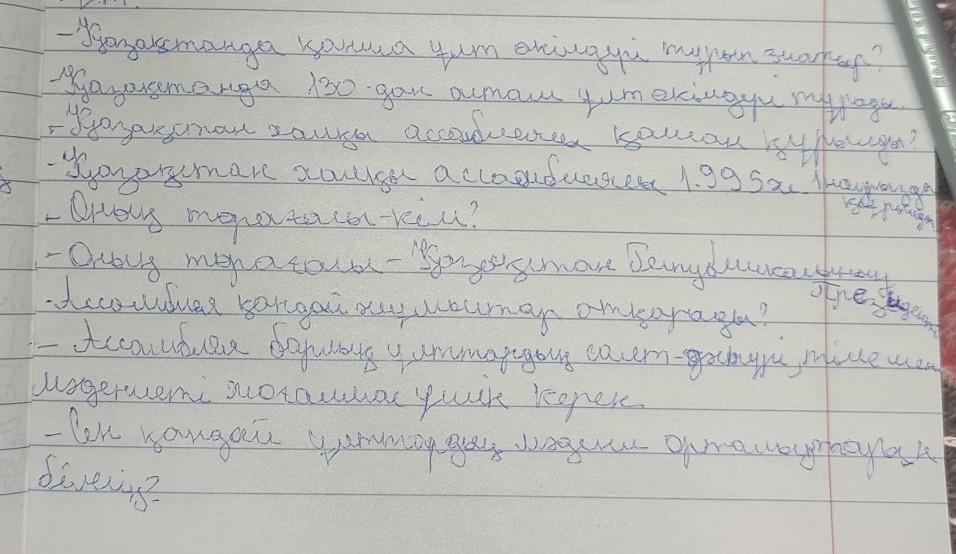 - Қазақстанда қанша ұлт өкілдері тұрып жатыр?
- Қазақстанда 130-дан астам ұлт өкілдері тұрады.
- Қазақстан халқы ассамблеясы қашан құрылды?
- Қазақстан халқы ассамблеясы 1.995ж 1 наурызда құрылды
- Оның төрағасы-кім?
- Оның төрағасы - Қазақстан Республикасының Президенті
- Ассамблея қандай жұмыстар атқарады?
- Ассамблея барлық ұлттардың салт-дәстүрі, тілі мен
мәдениеті жоғалмас үшін керек
- Сен қандай ұлттардың мәдени орталықтарын
білесің?